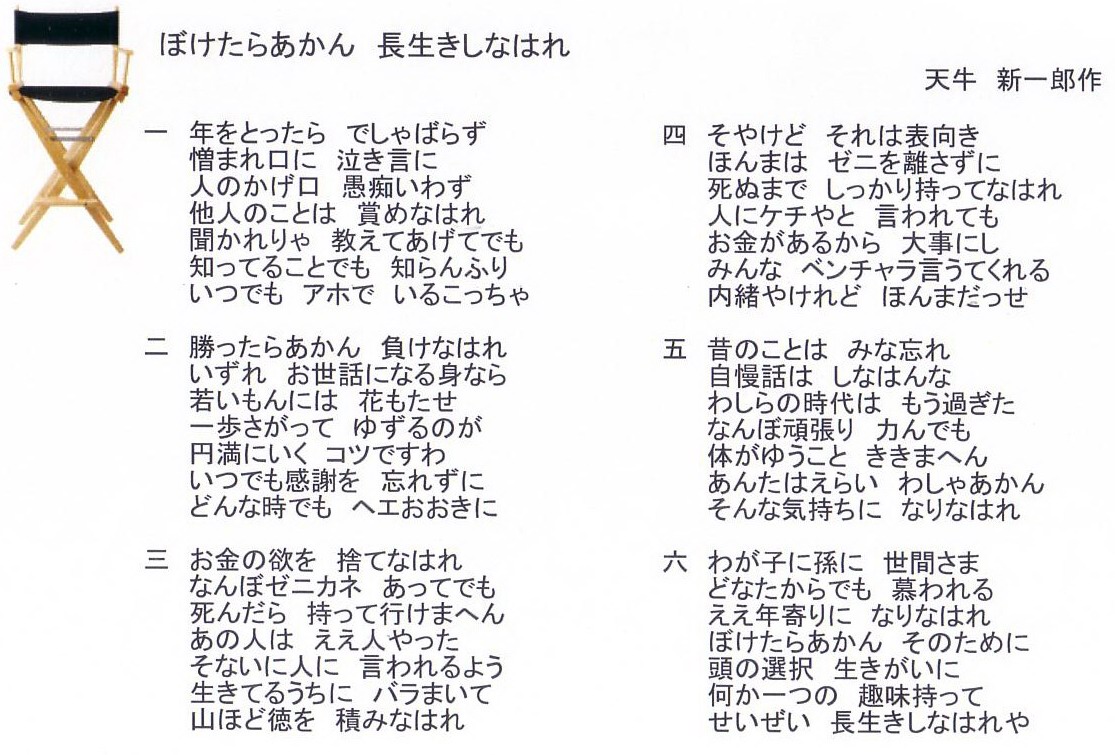 ぼけたらあかん　長生きしなはれ
天牛　新一郎作
一　年をとったら　でしゃばらず
憎まれ口に　泣き言に
人のかげ口　愚痴いわず
他人のことは　賞めなはれ
聞かれりゃ　教えてあげてでも
知ってることでも　知らんふり
いつでも　アホで　いるこっちゃ
二　勝ったらあかん　負けなはれ
いずれ　お世話になる身なら
若いもんには　花もたせ
一歩さがって　ゆずるのが
円満にいく　コツですわ
いつでも感謝を　忘れずに
どんな時でも　ヘエおおきに
三　お金の欲を　捨てなはれ
なんぼゼニカネ　あってでも
死んだら　持って行けまへん
あの人は　ええ人やった
そないに人に　言われるよう
生きてるうちに　バラまいて
山ほど徳を　積みなはれ
四　そやけど　それは表向き
ほんまは　ゼニを離さずに
死ぬまで　しっかり持ってなはれ
人にケチやと　言われても
お金があるから　大事にし
みんな　ベンチャラ言うてくれる
内緒やけれど　ほんまだっせ
五　昔のことは　みな忘れ
自慢話は　しなはんな
わしらの時代は　もう過ぎた
なんぼ頑張り　力んでも
体がゆうこと　ききまへん
あんたはえらい　わしゃあかん
そんな気持ちに　なりなはれ
六　わが子に孫に　世間さま
どなたからでも　慕われる
ええ年寄りに　なりなはれ
ぼけたらあかん　そのために
頭の選択　生きがいに
何か一つの　趣味持って
せいぜい　長生きしなはれや